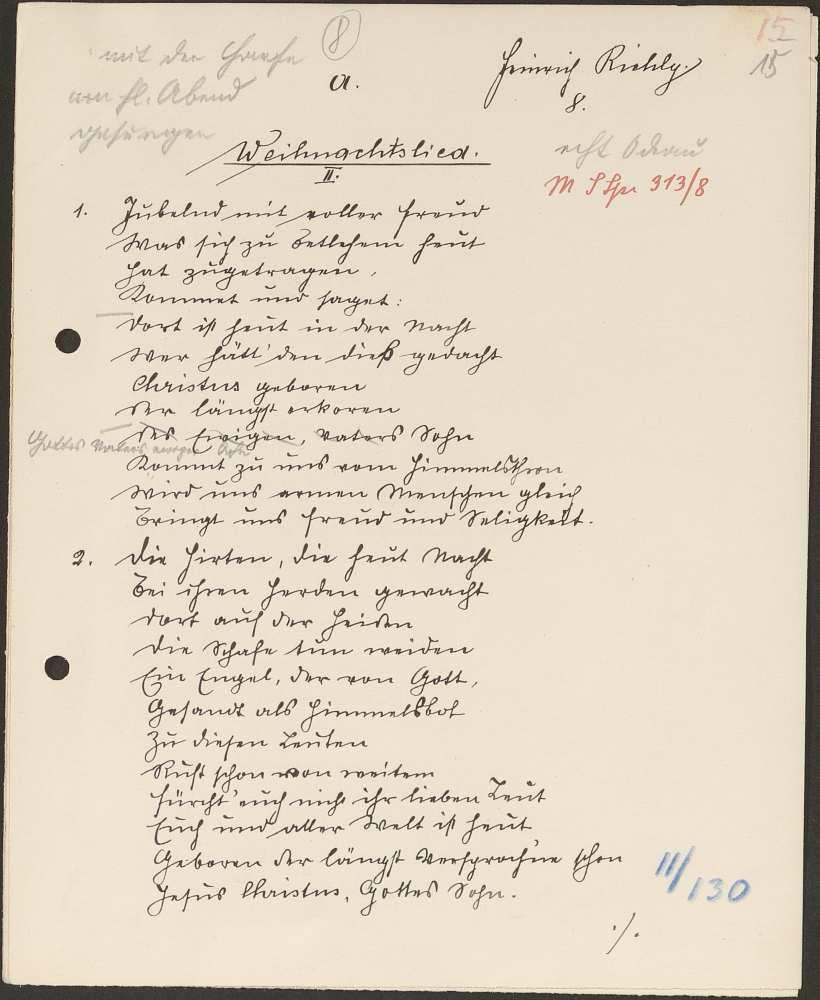 mit der Harfe
am hl. Abend
gesungen
8
a.
Heinrich
8.
15
15
echt Odrau
M 313/8
Weihnachtslied.
II.
1. Jubelnd mit voller Freud
Was sich zu Betlehem heut
hat zugetragen,
Kommet und saget:
Dort ist heut in der Nacht
Wer hätt' den dieß gedacht
Christus geboren
Der längst erkoren
Des Ewigen, Vaters Sohn
Gottes Vaters ewiger Sohn
Kommt zu uns vom Himmelsthron
Wird uns armen Menschen gleich
Bringt uns Freud und Seligkeit.
2. Die Hirten, die heut Nacht
Bei ihren Herden gewacht
Dort auf der Heiden
Die Schafe tun weiden
Ein Engel, der von Gott,
Gesandt als Himmelsbot
Zu diesen Leuten
Ruft schon von weitem
Fürcht' euch nicht ihr lieben Leut
Euch und aller Welt ist heut
Geboren der längst Versprochne schon
Jesus Christus, Gottes Sohn.
./.
II/130